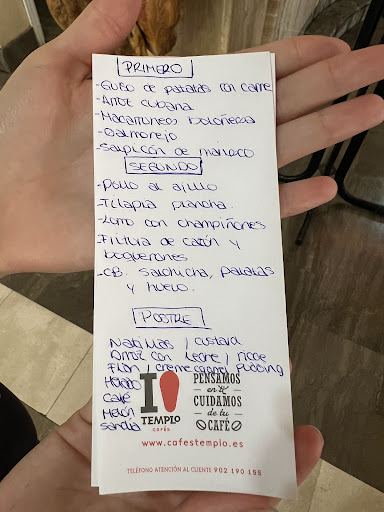 PRIMERO
-Guiso de patatas con carne
-Arroz cubana
-Macarrones boloñesa
-Salmorejo
-Salpicón de marisco
SEGUNDO
-Pollo al ajillo
-Tilapia plancha.
-Lomo con champiñones
-Fritura de cazón y
boquerones
-CB. Salchicha, patatas
y huevo.
POSTRE
Natillas / custard
Arroz con leche / rice
Flan / creme caramel pudding
Helado
Café
Melón
Sandía
I
TEMPLO
CAFÉS
PENSAMOS
en ti
CUIDAMOS
de tu
CAFÉ
www.cafestemplo.es
TELÉFONO ATENCIÓN AL CLIENTE 902 190 155